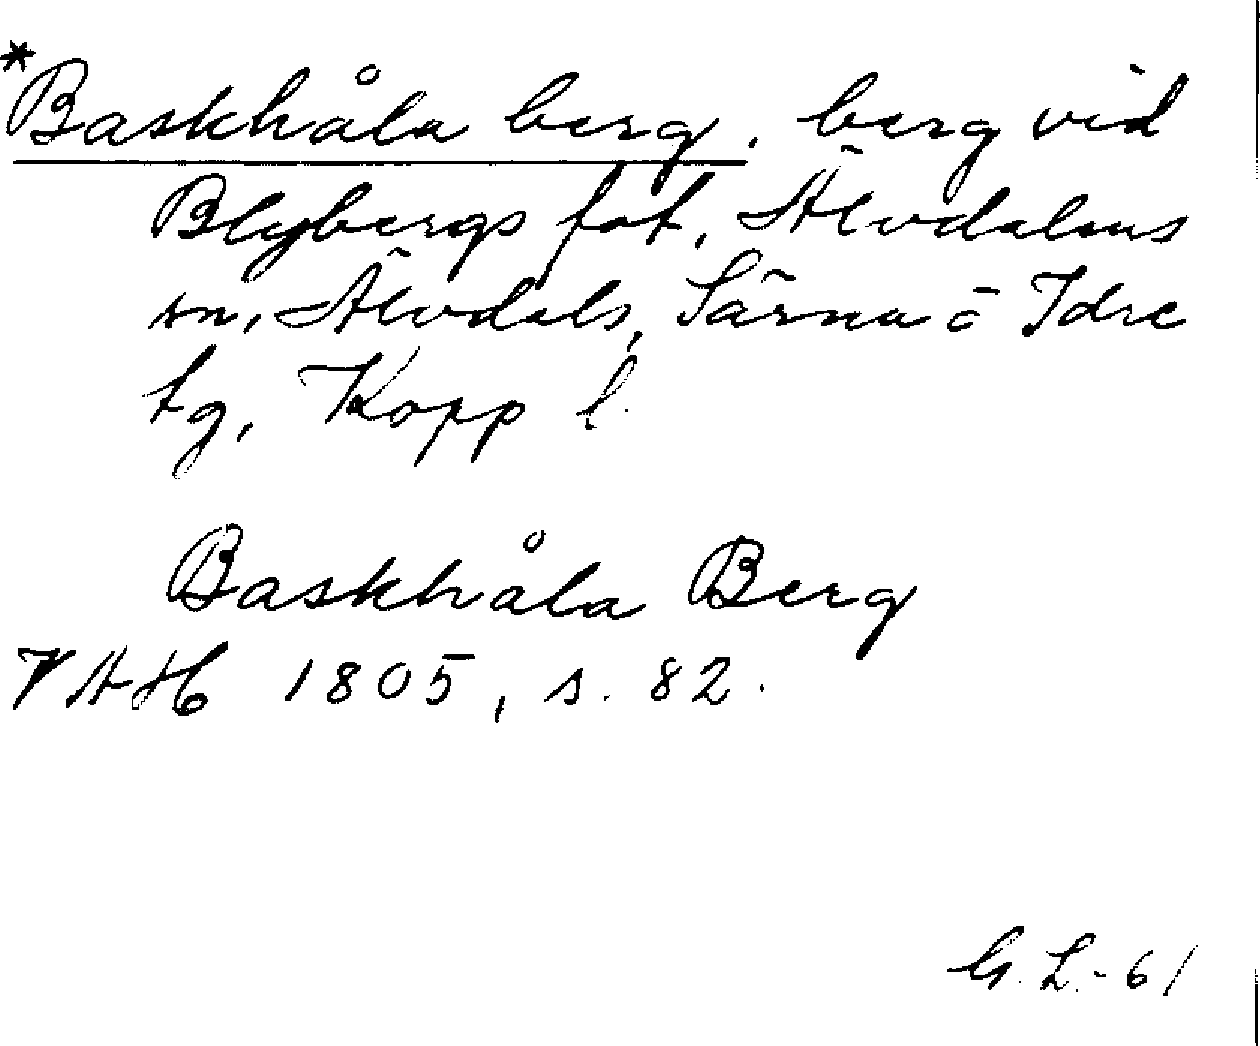 *Baskhåla berg, berg vid
Blybergs fot, Älvdalens
sn, Älvdals, Särna o Idre
tg, Kopp l.
Baskhåla Berg
VAH 1805, s. 82.
G. L. - 61